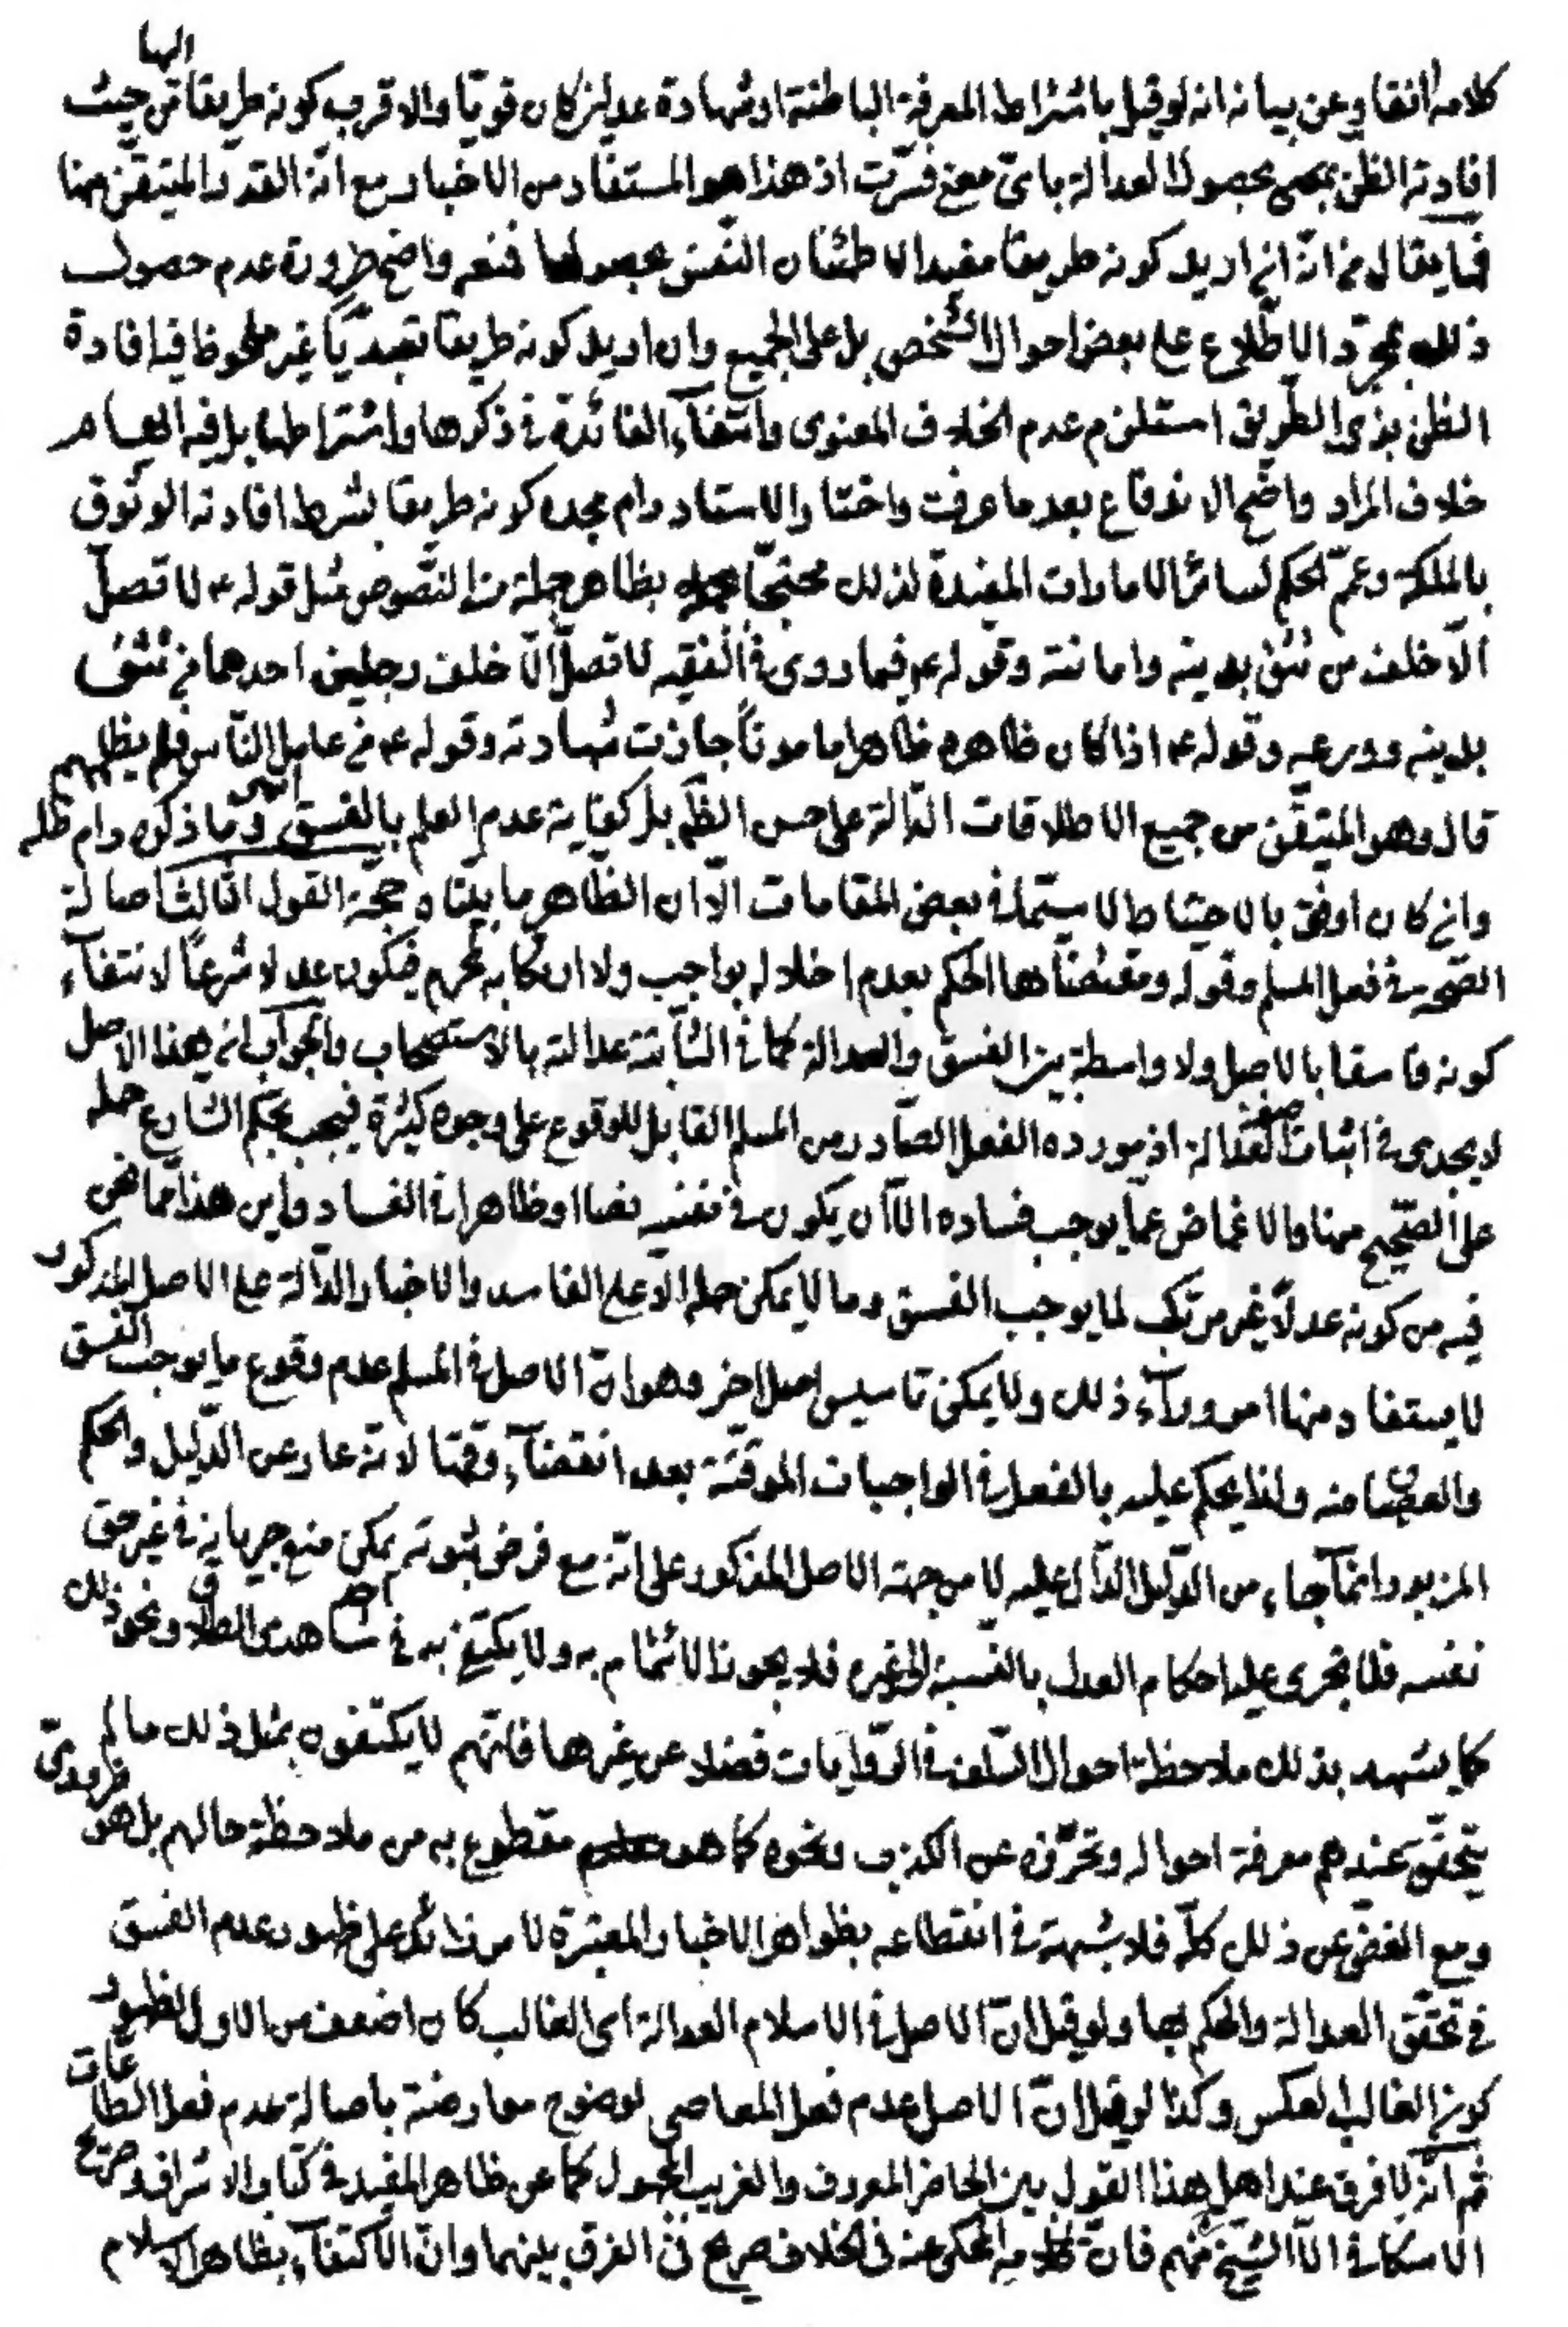 كلامه انفا وعن بيانه انه لو قيل باشتراط المعرفة الباطنة او شهادة عدلين كان قويّا والاقرب كونه طريقا اليها من حيث
افادته الظن بحصول العدالة باىّ معنى فسّرت اذ هذا هو المستفاد من الاخبار مع انّه القدر المتيقّن منها
فما يقال من انّه ان اريد كونه طريقا مفيدا لاطمئنان النّفس بحصولها فمنعه واضح ضرورة عدم حصول
ذلك بمجرّد الاطّلاع على بعض احوال الشّخص بل على الجميع وان اريد كونه طريقا تعبديّا غير ملحوظ فيه افادة
الظن بذى الطّريق استلزم عدم الخلاف المعنوى وانتفآء الفائدة فى ذكرها واشتراطها بل فيه ايهام
خلاف المراد واضح الاندفاع بعد ما عرفت واختار الاستاد دام مجده كونه طريقا بشرط افادته الوثوق
بالملكة وعمّم الحكم لسائر الامارات المفيدة لذلك محتجّا بظاهر جملة من النّصوص مثل قوله ع لا تصلّ
الّا خلف من تثق بدينه وامانته وقوله ع فيما روى فى الفقيه لا تصلّ الّا خلف رجلين احدهما من تثق
بدينه وورعه وقوله ع اذا كان ظاهره ظاهرا مامونا جازت شهادته وقوله ع من عامل النّاس فلم يظلمهم
قال وهو المتيقّن من جميع الاطلاقات الدّالة على حسن الظّاهر بل كفاية عدم العلم بالفسق انتهى وما ذكره دام ظله
وان كان اوفق بالاحتياط لا سيّما فى بعض المقامات الّا ان الظّاهر ما بيّنّاه وحجّة القول الثّالث اصالة
الصّحة فى فعل المسلم وقوله ومقتضاها الحكم بعدم اخلاله بواجب ولا ارتكابه لمحرم فيكون عدلا شرعاً لانتفآء
كونه فاسقا بالاصل ولا واسطة بين الفسق والعدالة كما فى الثّابتة عدالته بالاستصحاب والجواب ان هذا الاصل
لا يجدى فى اثبات صفة العدالة اذ مورده الفعل الصّادر من المسلم القابل للوقوع على وجوه كثيرة فيجب بحكم الشّارع حمله
على الصّحيح منها والاغماض عمّا يوجب فساده الّا ان يكون فى نفسه نصا او ظاهرا فى الفساد واين هذا ممّا نحن
فيه من كونه عدلاً غير مرتكب لما يوجب الفسق وما لا يمكن حمله الّا على الفاسد والاخبار الدّالة على الاصل المذكور
لا يستفاد منها امر ورآء ذلك ولا يمكن تاسيس اصل اخر وهو انّ الاصل فى المسلم عدم وقوع ما يوجب الفسق
والعصيان منه ولذا يحكم عليه بالفعل فى الواجبات الموقّتة بعد انقضآء وقتها لانّه عار عن الدّليل والحكم
المزبور انّما جاء من الدّليل الدّال عليه لا من جهة الاصل المذكور على انّه مع فرض ثبوته يمكن منع جريانه فى غير حق
نفسه فلا تجرى عليه احكام العدل بالنّسبة الى غيره فلا يجوز الائتمام به ولا يكتفى به فى شاهدى الطلاق ونحو ذلك
كما يشهد بذلك ملاحظة احوال السّلف فى الرّوايات فضلا عن غيرها فانّهم لا يكتفون بمثل ذلك ما لم
يتحقّق عندهم معرفة احواله وتحرّزه عن الكذب ونحوه كما هو مقطوع به من ملاحظة حالهم بل هو ضرورىّ
ومع الغضّ عن ذلك كلّه فلا شبهة فى انقطاعه بظواهر الاخبار المعتبرة لا من زائد على ظهور عدم الفسق
فى تحقّق العدالة والحكم بها ولو قيل انّ الاصل فى الاسلام العدالة اى الغالب كان اضعف من الاول لظهور
كون الغالب العكس وكذا لو قيل انّ الاصل عدم فعل المعاصى لوضوح معارضته باصالة عدم فعل الطاعات
ثم انّه لا فرق عند اهل هذا القول بين الحاضر المعروف والغريب المجهول كما عن ظاهر المفيد فى كتاب الاشراف وصريح
الاسكافى الّا الشّيخ منهم فانّ كلامه المحكى عنه فى الخلاف صريح فى الفرق بينهما وانّ الاكتفآء بظاهر الاسلام